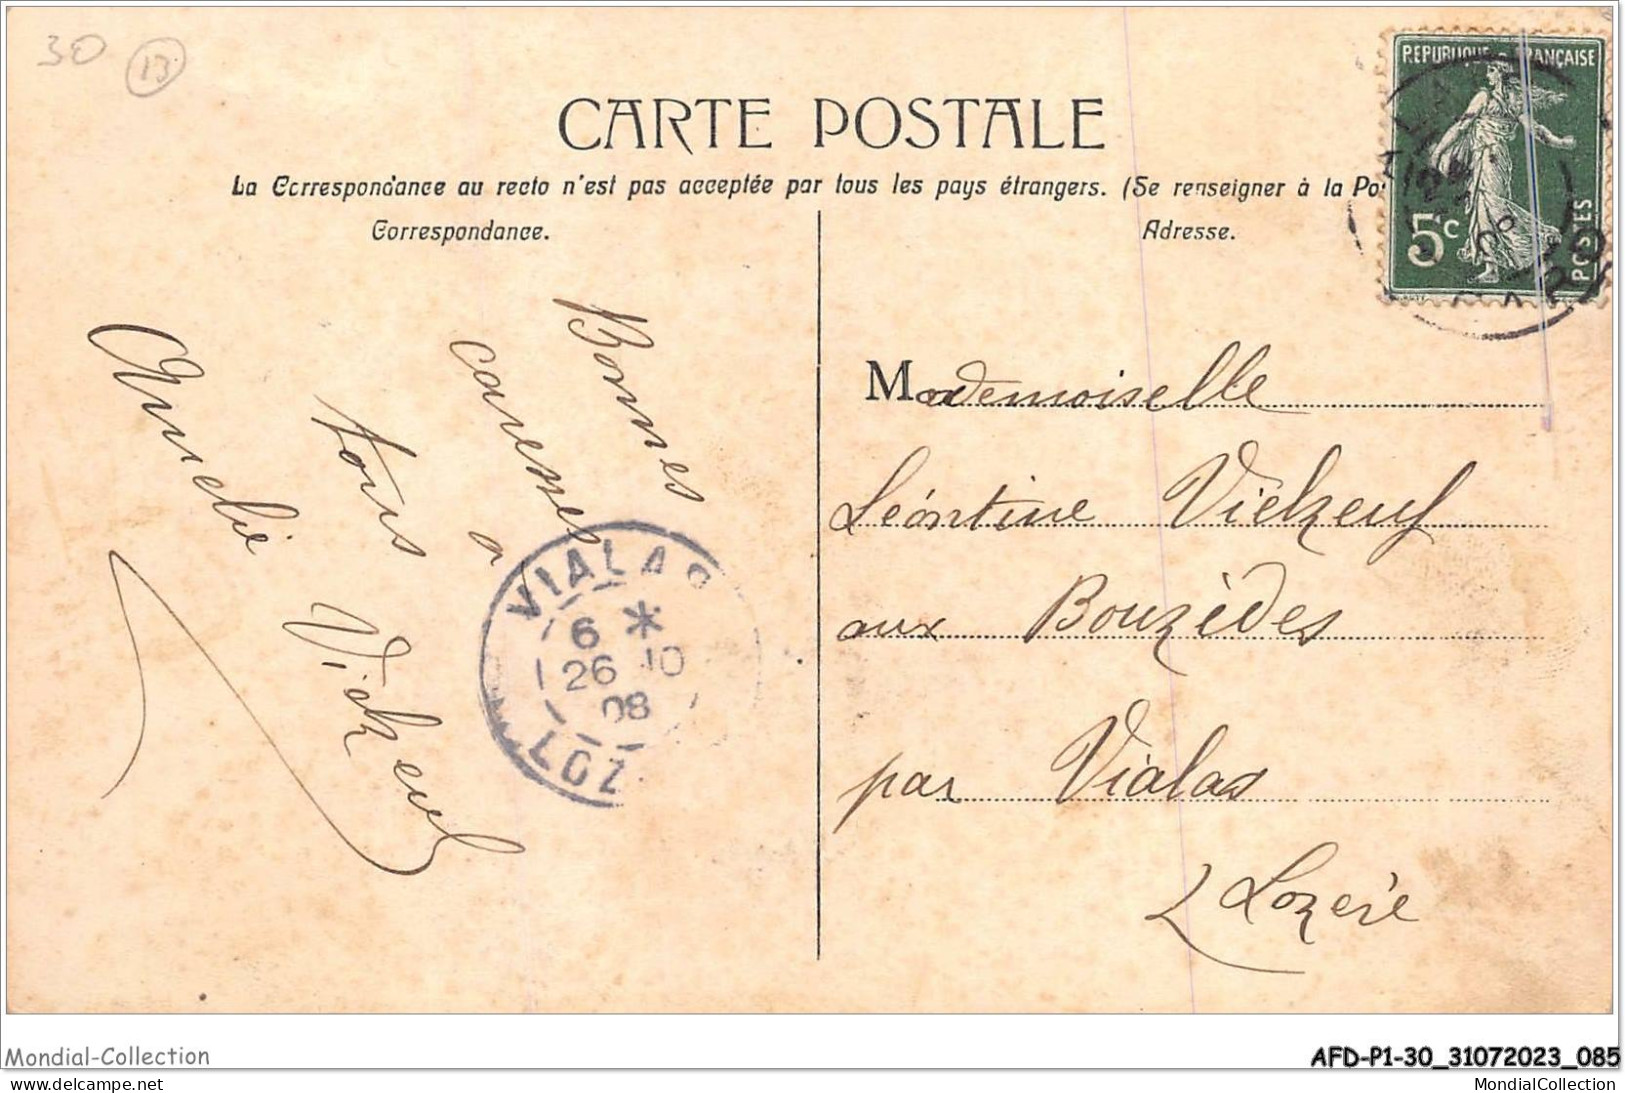 30
13
CARTE POSTALE
La Correspondance au recto n'est pas acceptée par tous les pays étrangers. (Se renseigner à la Po
Correspondance.
Adresse.
REPUBLIQUE FRANÇAISE
5c
POSTES
Bonnes
caresses
a
tous
Amelie
Vielzeuf
VIALAS
6 *
26 10
08
LOZ
Mademoiselle
Léontine Vielzeuf
aux Bouzèdes
par Vialas
Lozère
Mondial-Collection
AFD-P1-30_31072023_085
delcampe.net
MondialCollection